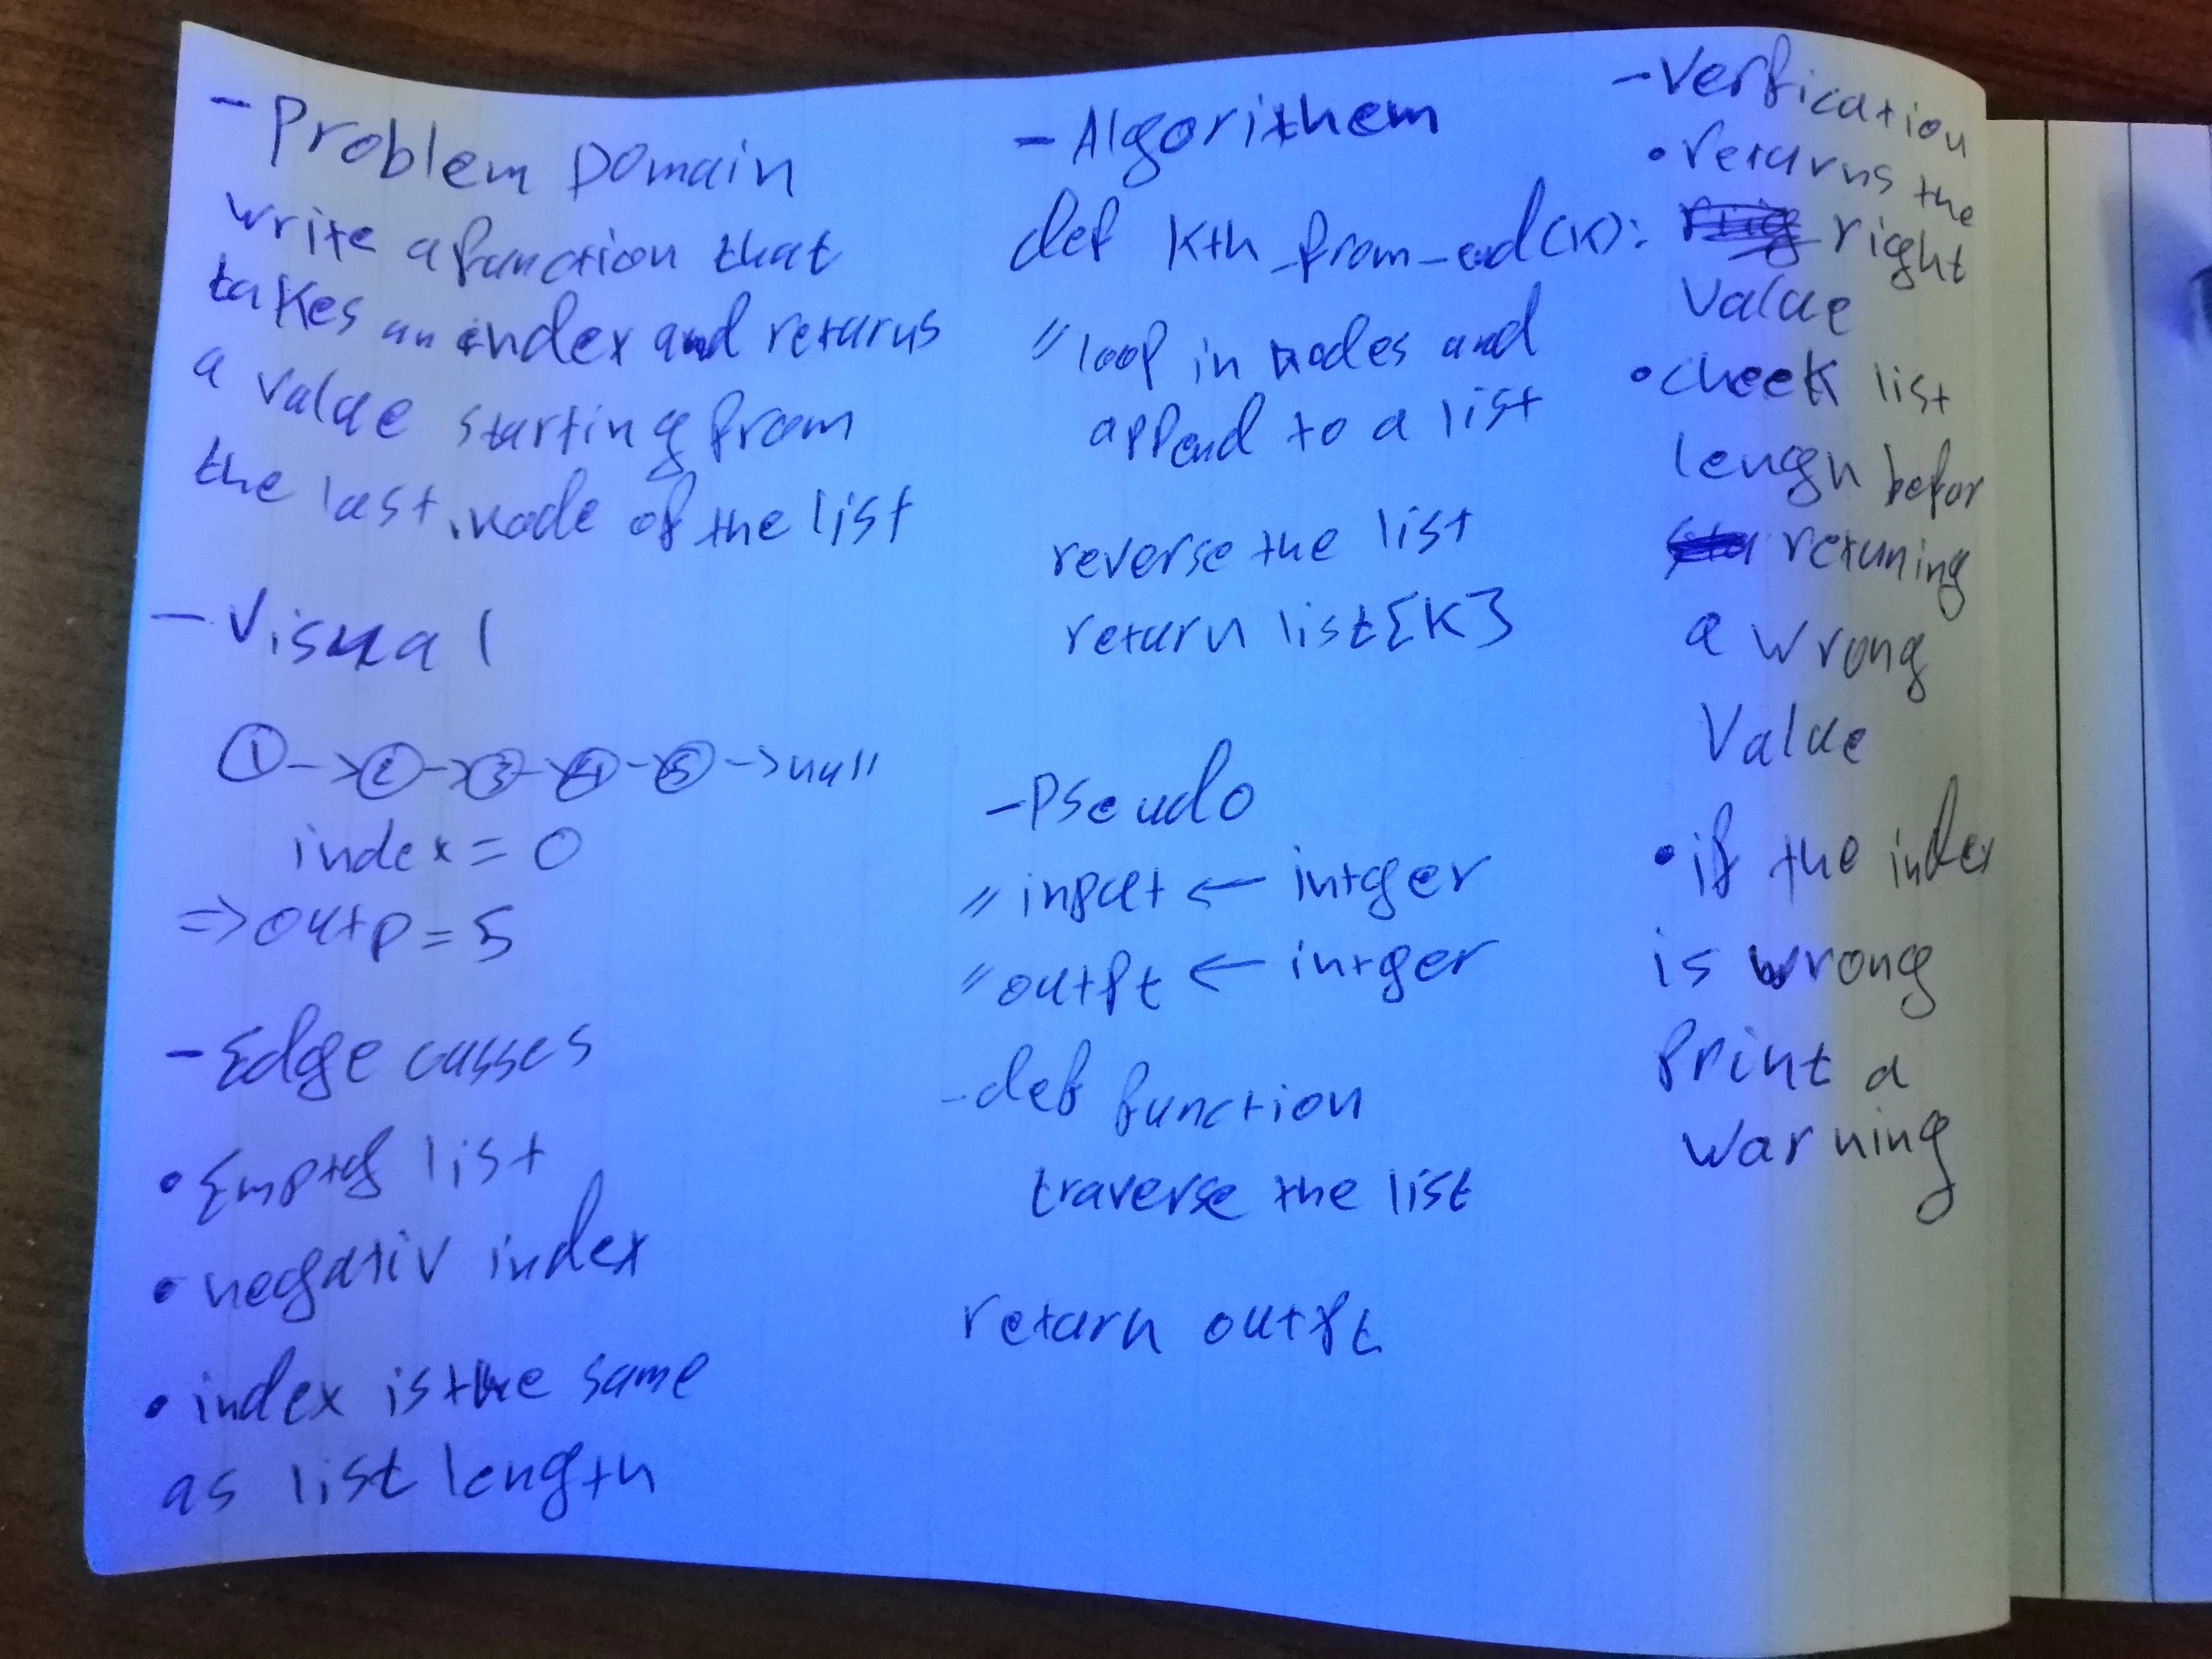 - Problem Domain
write a function that
takes an index and returns
a value starting from
the last node of the list
- Visual
1 -> 2 -> 3 -> 4 -> 5 -> null
index = 0
=> outp = 5
- Edge casses
• Empty list
• negativ index
• index is the same
as list length
- Algorithem
def kth_from_end(k):
" loop in nodes and
append to a list
reverse the list
return list[K]
- Pseudo
" input <- intger
" outpt <- intger
- def function
traverse the list
return outpt
- Verfication
• returns the
right
value
• cheek list
lengh befor
retuning
a wrong
Value
• if the index
is wrong
print a
warning